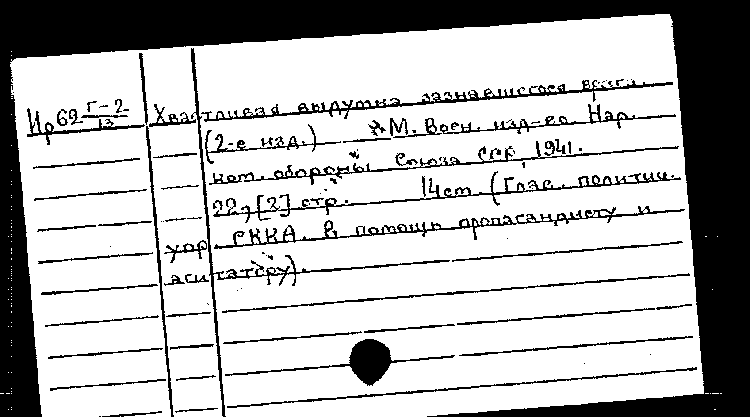 Ир 62 Г-2/13 Хвастливая выдумка зазнавшегося врага.
(2-е изд.) М. Воен. изд-во Нар.
ком. обороны Союза ССР, 1941.
22, [2] стр. 14 см. (Глав. политич.
упр. РККА. В помощь пропагандисту и
агитатору).